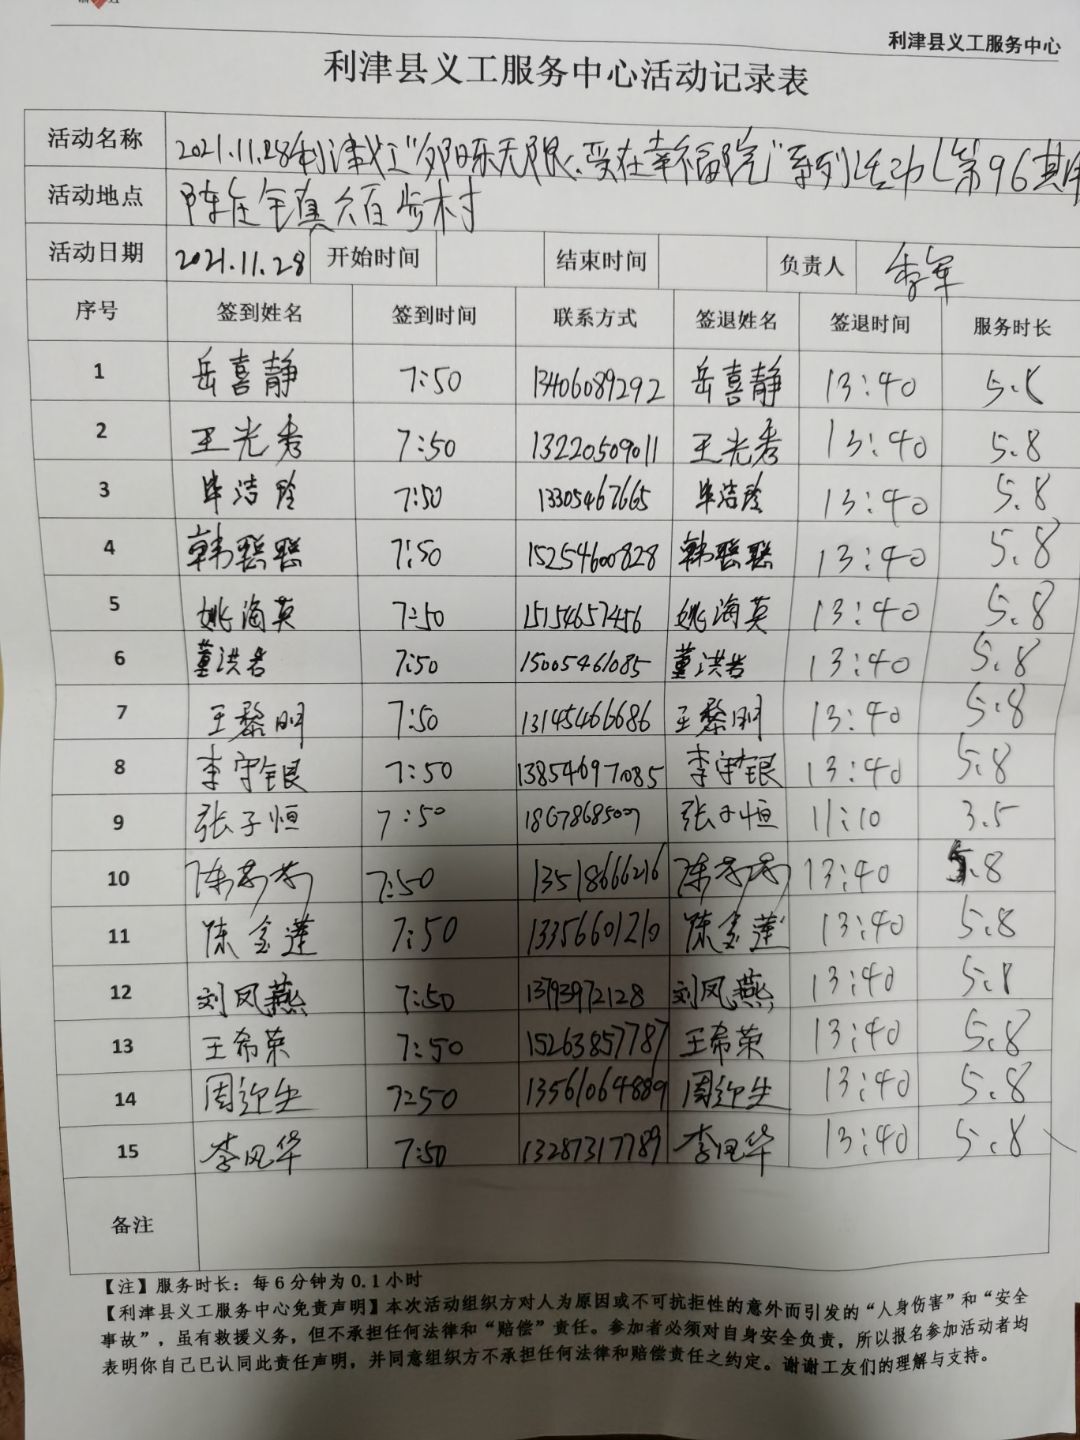 利津县义工服务中心
利津县义工服务中心活动记录表
活动名称 2021.11.28利津义工"夕阳乐无限、爱在幸福院"系列活动(第96期
活动地点 陈庄镇六百步村
活动日期 2021.11.28 开始时间 结束时间 负责人 李军
序号 签到姓名 签到时间 联系方式 签退姓名 签退时间 服务时长
1 岳喜静 7:50 13406089292 岳喜静 13:40 5.8
2 王光秀 7:50 13220509011 王光秀 13:40 5.8
3 毕洁玲 7:50 13305467665 毕洁玲 13:40 5.8
4 韩聪聪 7:50 15254600828 韩聪聪 13:40 5.8
5 姚海英 7:50 15154657456 姚海英 13:40 5.8
6 董洪岩 7:50 15005461085 董洪岩 13:40 5.8
7 王黎明 7:50 13145466686 王黎明 13:40 5.8
8 李守银 7:50 13854697085 李守银 13:40 5.8
9 张子恒 7:50 18678685007 张子恒 11:10 3.5
10 陈芳芳 7:50 13518666216 陈芳芳 13:40 5.8
11 陈金莲 7:50 13356601210 陈金莲 13:40 5.8
12 刘凤燕 7:50 13793972128 刘凤燕 13:40 5.8
13 王希荣 7:50 15263857787 王希荣 13:40 5.8
14 周迎生 7:50 13561064889 周迎生 13:40 5.8
15 李凤华 7:50 13287317789 李凤华 13:40 5.8
备注
【注】服务时长：每6分钟为0.1小时
【利津县义工服务中心免责声明】本次活动组织方对人为原因或不可抗拒性的意外而引发的“人身伤害”和“安全
事故”，虽有救援义务，但不承担任何法律和“赔偿”责任。参加者必须对自身安全负责，所以报名参加活动者均
表明你自己已认同此责任声明，并同意组织方不承担任何法律和赔偿责任之约定。谢谢工友们的理解与支持。